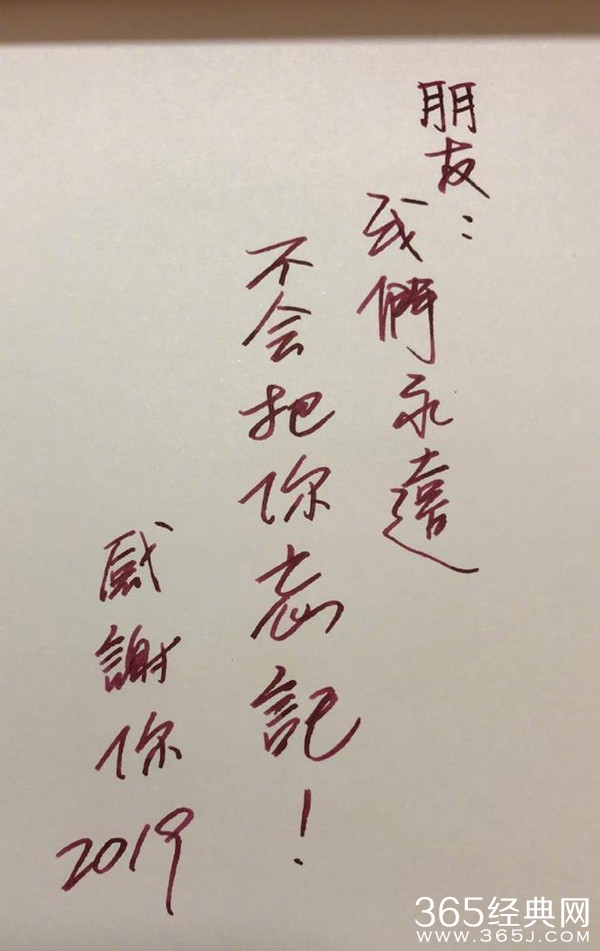 朋友：
我們永遠
不会把你忘記！
感謝你
2019
365经典网
www.365j.com